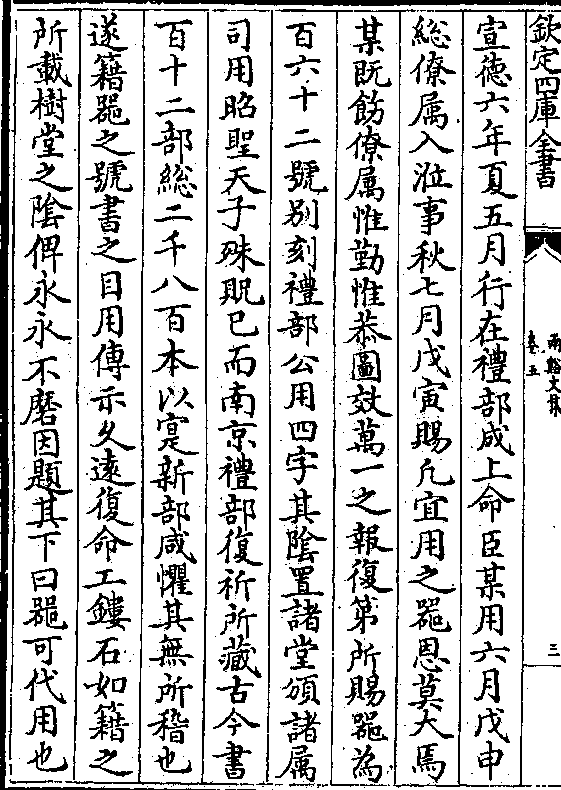 欽定四庫全書
兩谿文集
卷五
三
宣德六年夏五月行在禮部成上命臣某用六月戊申
総僚属入涖事秋七月戊寅賜凡宜用之器恩莫大焉
某既飭僚属惟勤惟恭圖效萬一之報復第所賜器為
百六十二號别刻禮部公用四字其陰置諸堂頒諸属
司用昭聖天子殊貺已而南京禮部復析所藏古今書
百十二部総二千八百本以寔新部咸懼其無所稽也
遂籍器之號書之目用傳示久遠復命工鏤石如籍之
所載樹堂之陰俾永永不磨因題其下曰器可代用也